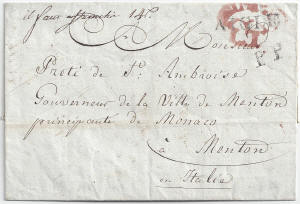 il faut affranchir
P.P.
A Monsieur
Preti de St. Ambroise
Gouverneur de la Ville de Menton
principauté de Monaco
à Menton
en Italie